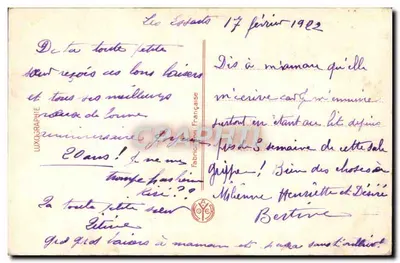 Les Essarts 17 février 1922
De ta toute petite
sœur reçois ces bons baisers
et tous ses meilleurs
vœux de bonne
anniversaire
20 ans! je ne me
trompe pas hein
Ta toute petite sœur
Titine
gros gros baisers à maman et
LUXOGRAPHIE
Fabrication Française
Dis à maman qu'elle
m'écrive car je m'ennuie
surtout en étant au lit depuis
1 semaine de cette sale
grippe! Bien des choses à
Henriette et Désiré
Bertine